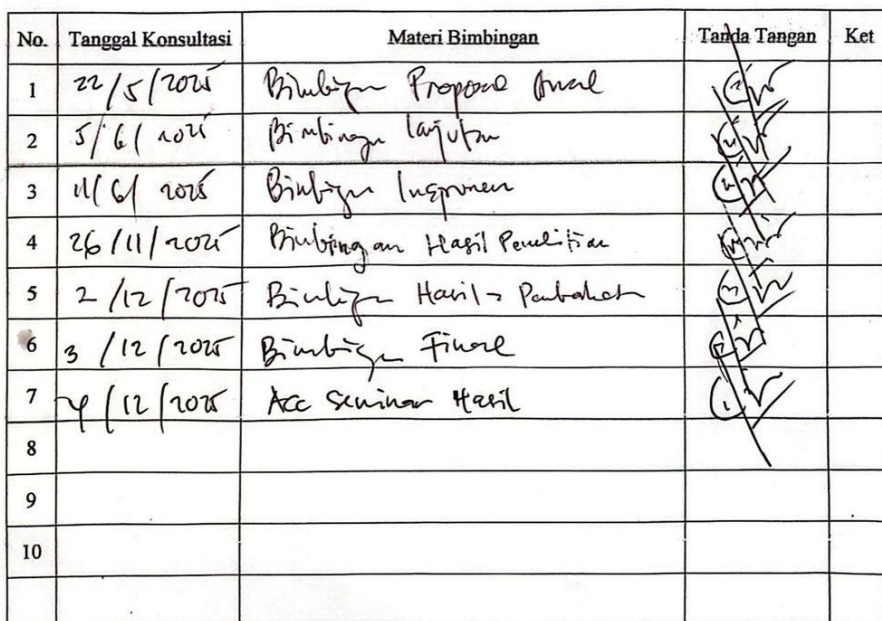 No. Tanggal Konsultasi Materi Bimbingan Tanda Tangan Ket
1 22/5/2025 Bimbingan Proposal Awal
2 5/6/2025 Bimbingan lanjutan
3 11/6/2025 Bimbingan Instrumen
4 26/11/2025 Bimbingan Hasil Penelitian
5 2/12/2025 Bimbingan Hasil - Pembahasan
6 3/12/2025 Bimbingan Final
7 4/12/2025 Acc Seminar Hasil
8
9
10